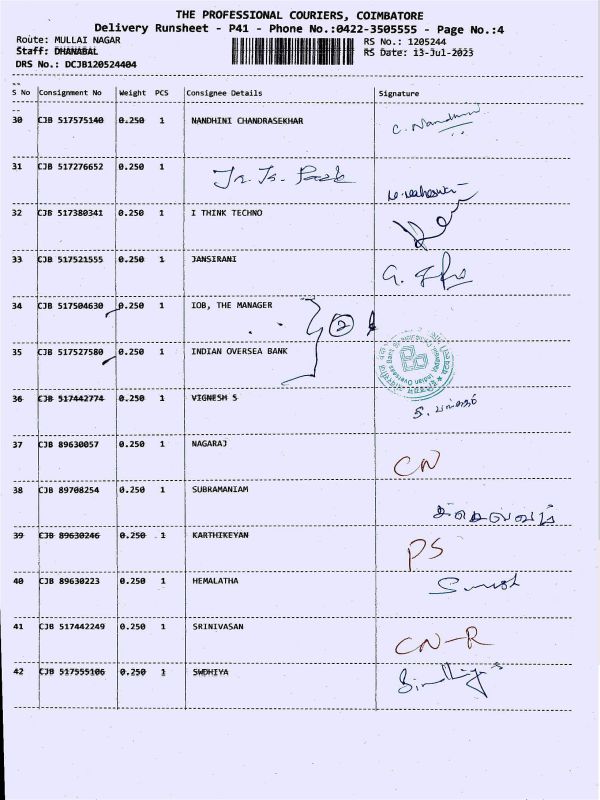 THE PROFESSIONAL COURIERS, COIMBATORE
Delivery Runsheet - P41 - Phone No.:0422-3505555 - Page No.:4
Route: MULLAI NAGAR
RS No.: 1205244
Staff: DHANABAL
RS Date: 13-Jul-2023
DRS No.: DCJB120524404
S No Consignment No Weight PCS Consignee Details Signature
30 CJB 517575140 0.250 1 NANDHINI CHANDRASEKHAR C. Nandhini
31 CJB 517276652 0.250 1
32 CJB 517380341 0.250 1 I THINK TECHNO
33 CJB 517521555 0.250 1 JANSIRANI
34 CJB 517504630 0.250 1 IOB, THE MANAGER 2
35 CJB 517527580 0.250 1 INDIAN OVERSEA BANK
36 CJB 517442774 0.250 1 VIGNESH S
37 CJB 89630057 0.250 1 NAGARAJ CN
38 CJB 89708254 0.250 1 SUBRAMANIAM
39 CJB 89630246 0.250 1 KARTHIKEYAN PS
40 CJB 89630223 0.250 1 HEMALATHA
41 CJB 517442249 0.250 1 SRINIVASAN CN-R
42 CJB 517555106 0.250 1 SWDHIYA